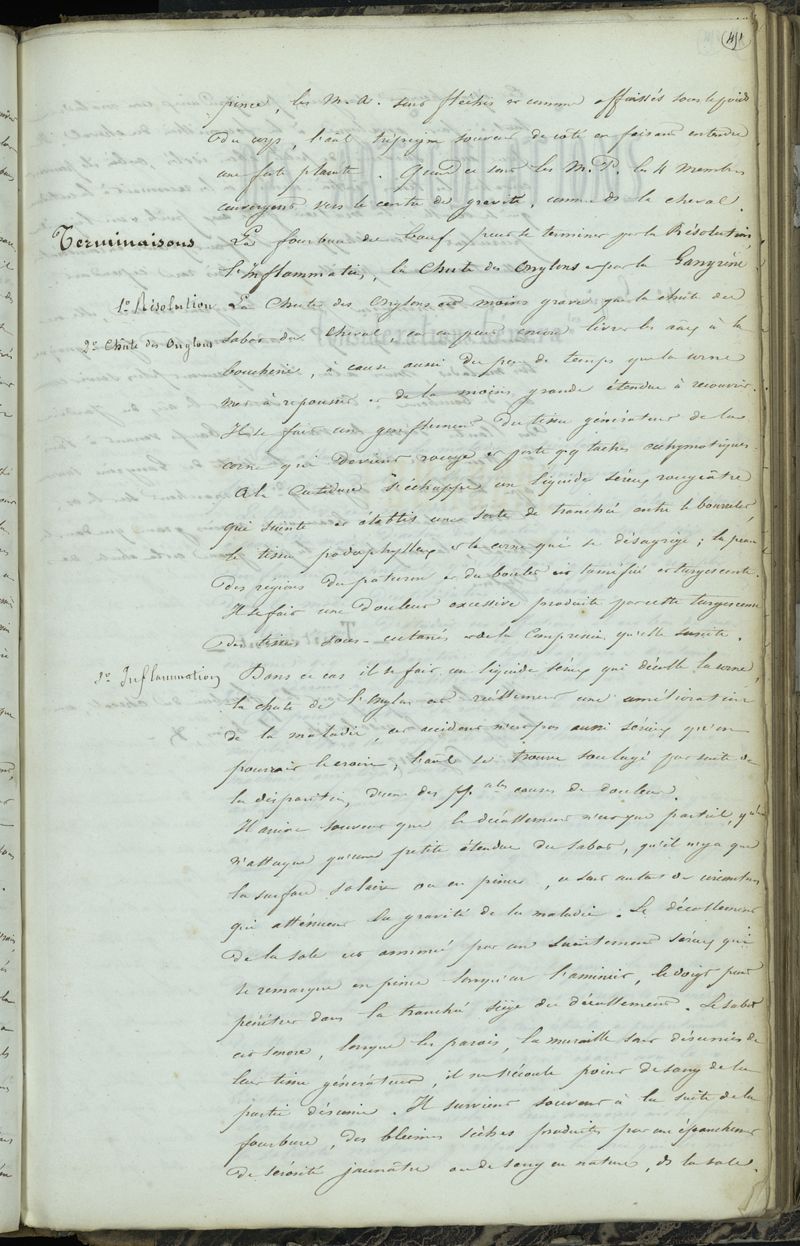 41
pince, les M. A. sont fléchis et comme affaissés sous le poids
du corps, l'anl trépigne souvent de coté en faisant entendre
une forte plainte. Quand ce sont les M. P. les 4 membres
convergent vers le centre de gravité, comme ds le cheval.
Terminaisons
La fourbure du bœuf peut se terminer par la Résolution,
l'Inflammation, la Chute des Onglons et par la Gangrène
1° Résolution
La Chute des Onglons est moins grave que la chute du
2° Chute des Onglons
sabot du cheval, on peut encore livrer les aux à la
boucherie, à cause aussi du peu de temps que la corne
met à repousser et de la moins grande étendue à recouvrir.
Il se fait un gonflement du tissu générateur de la
corne qui devient rouge et porte qq taches ecchymotiques.
A la cutidure s'échappe un liquide séreux rougeâtre
qui suinte et établit une sorte de tranchée entre le bourrelet,
le tissu podophylleux et la corne qui se désagrège; la peau
des régions du paturon et du boulet est tuméfiée et turgescente.
Il se fait une douleur excessive produite par cette turgescence
des tissus sous-cutanés et de la Compression qu'elle suscite.
3° Inflammation
Dans ce cas il se fait un liquide séreux qui décolle la corne,
la chute de l'onglon est réellement une amélioration
de la maladie, cet accident n'est pas aussi sérieux qu'on
pourrait le croire, l'anl se trouve soulagé par suite de
la disparition d'une des pp.ales causes de douleur.
Il arrive souvent que le décollement n'est que partiel, qu'il
n'attaque qu'une petite étendue du sabot, qu'il n'y a que
la surface solaire ou en pince, ce sont autant de circonstan
qui atténuent la gravité de la maladie. Le décollement
de la sole est annoncé par un suintement séreux qui
se remarque en pince lorsqu'on l'amincit, le doigt peut
pénétrer dans la tranchée siège du décollement. Le sabot
est sonore, lorsque les parois, la muraille sont désunies de
leur tissu générateur, il ne s'écoule point de sang de la
partie désunie. Il survient souvent à la suite de la
fourbure, des bleimes sèches produites par un épanchement
de sérosité jaunâtre ou de sang en nature, ds la sole.